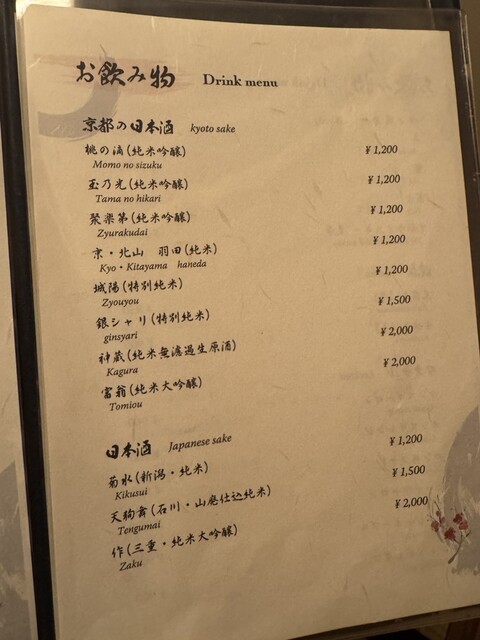 お飲み物 Drink menu
京都の日本酒 kyoto sake
桃の滴(純米吟醸) ¥1,200
Momo no sizuku
玉乃光(純米吟醸) ¥1,200
Tama no hikari
聚楽第(純米吟醸) ¥1,200
Zyurakudai
京・北山 羽田(純米) ¥1,200
Kyo・Kitayama haneda
城陽(特別純米) ¥1,200
Zyouyou
銀シャリ(特別純米) ¥1,500
ginsyari
神蔵(純米無濾過生原酒) ¥2,000
Kagura
富翁(純米大吟醸) ¥2,000
Tomiou
日本酒 Japanese sake
菊水(新潟・純米) ¥1,200
Kikusui
天狗舞(石川・山廃仕込純米) ¥1,500
Tengumai
作(三重・純米大吟醸) ¥2,000
Zaku